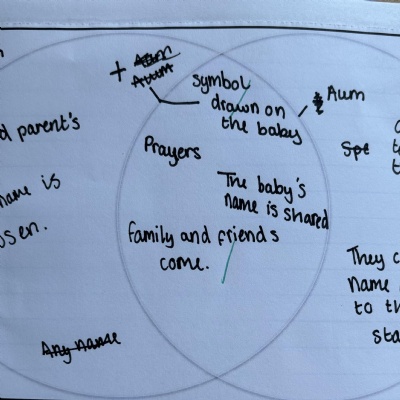 +
symbol
drawn on
the baby
Aum
d parent's
Prayers
name is
The baby's
name is shared
family and friends
come.
They c
name
to th
sta
Any name